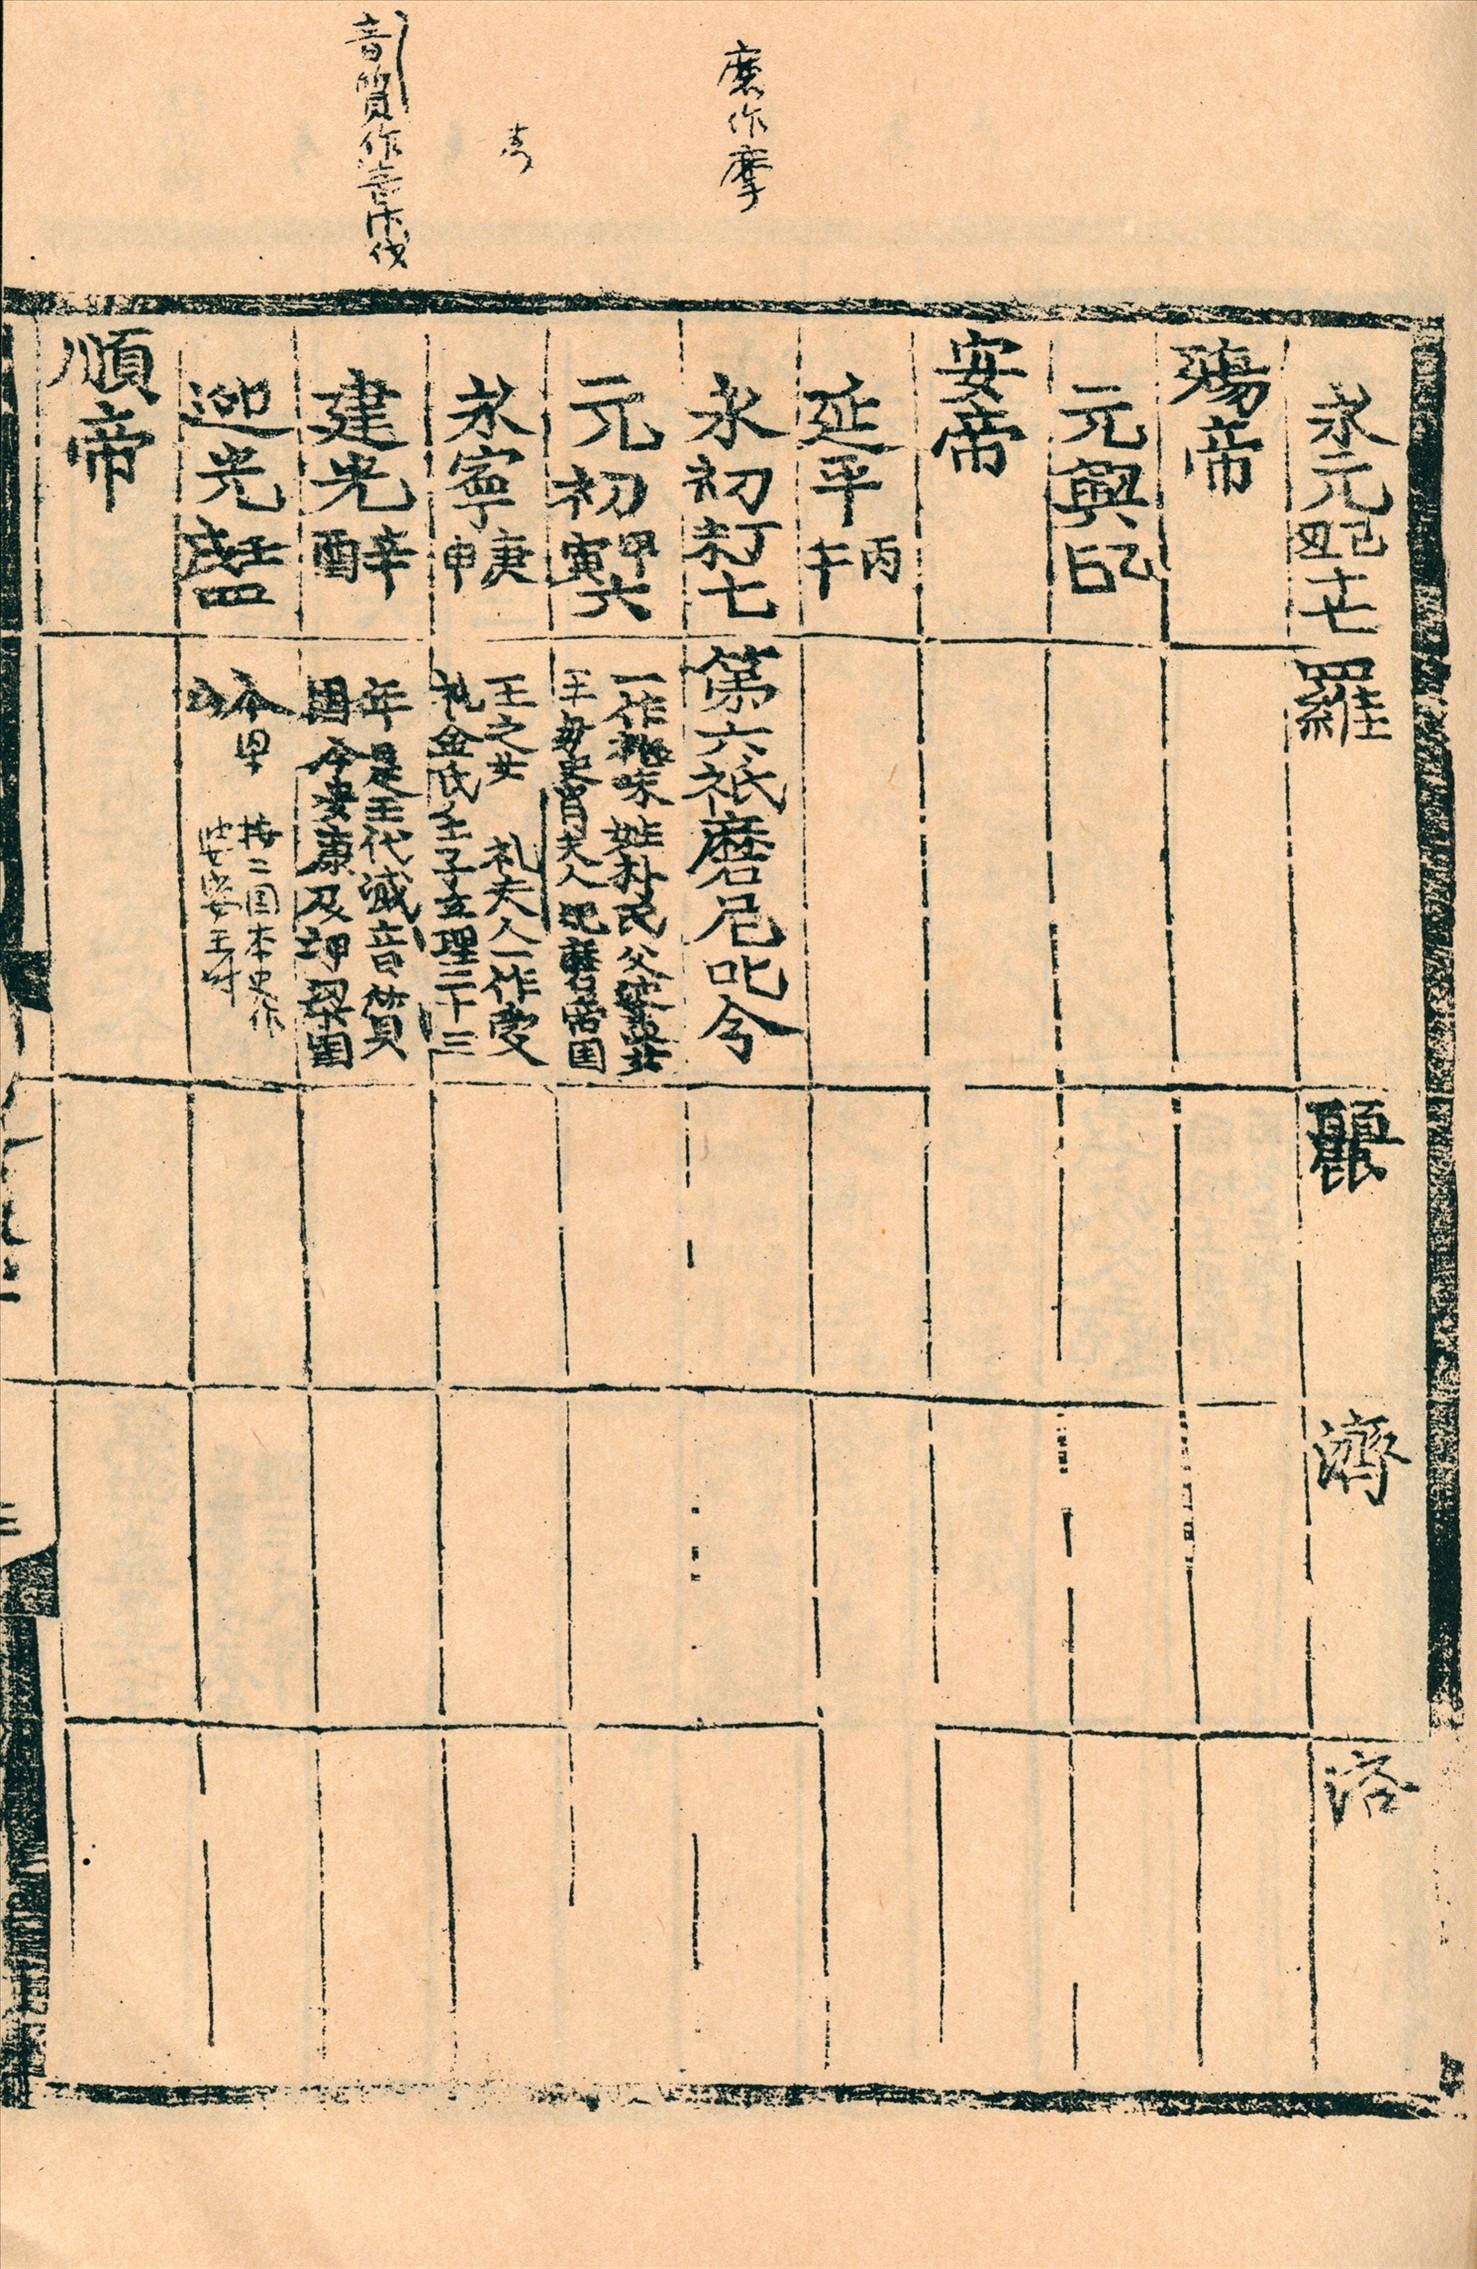 磨作摩
音質作音汁伐
永元己丑十七
羅
麗
濟
洛
殤帝
元興乙巳
安帝
延平丙午
永初丁未七
第六祇磨尼叱今
元初甲寅六
一作祗味姓朴氏父婆娑
王母史肖夫人磨帝国
永寧庚申
王之女 礼夫人一作愛
礼金氏壬子立理二十三
建光辛酉
年 是王代滅音質
国今安康及押梁国
延光壬戌四
今山
按三国本史作
婆娑王時
順帝